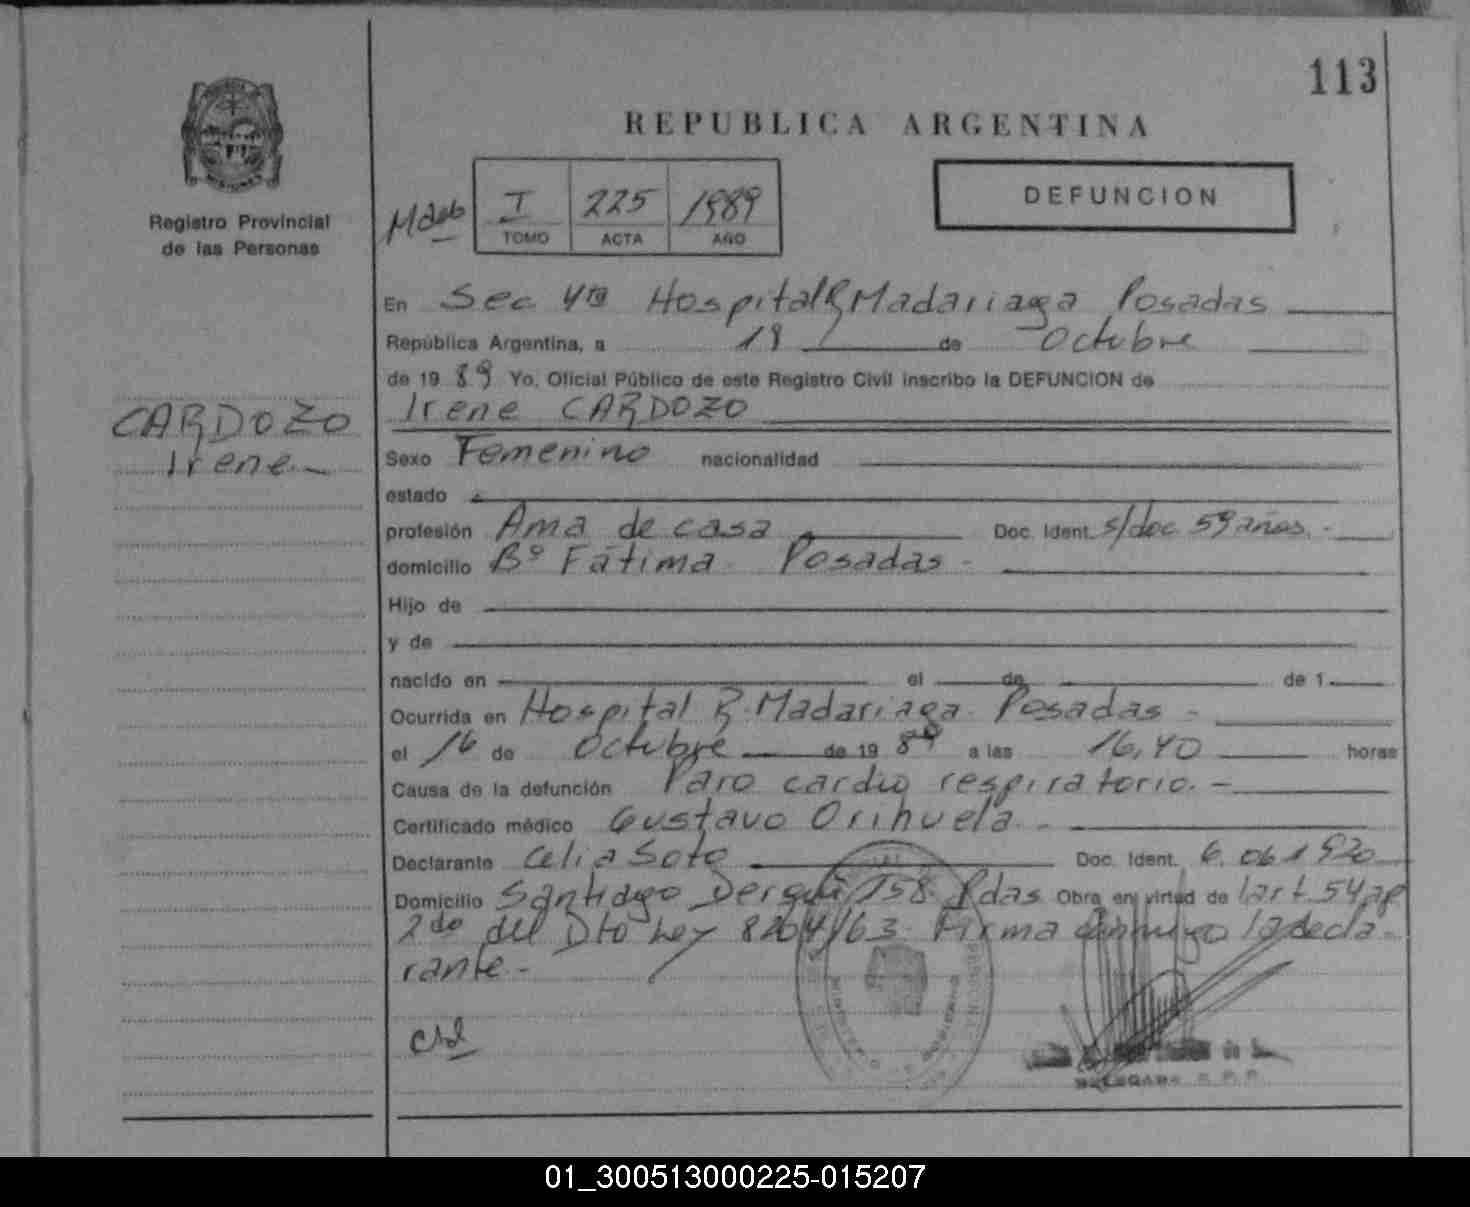 113
REPUBLICA ARGENTINA
Registro Provincial
de las Personas
DEFUNCION
I 225 1989
TOMO ACTA AÑO
En Sec 4ta Hospital R Madariaga Posadas
República Argentina, a 18 de Octubre
de 19 89 Yo, Oficial Público de este Registro Civil inscribo la DEFUNCION de
Irene CARDOZO
CARDOZO
Irene
Sexo Femenino nacionalidad
estado
profesión Ama de casa Doc. Ident. s/doc 59 años.-
domicilio Bº Fátima - Posadas -
Hijo de
y de
nacido en el de de 1
Ocurrida en Hospital R. Madariaga - Posadas -
el 16 de Octubre de 19 89 a las 16,40 horas
Causa de la defunción Paro cardio respiratorio.-
Certificado médico Gustavo Orihuela.-
Declarante Celia Soto Doc. Ident. 6.061920
Domicilio Santiago Derqui 158 Pdas Obra en virtud de l art 54 ap
2do del Dto Ley 8204/63. Firma conmigo la decla-
rante.-
01_300513000225-015207